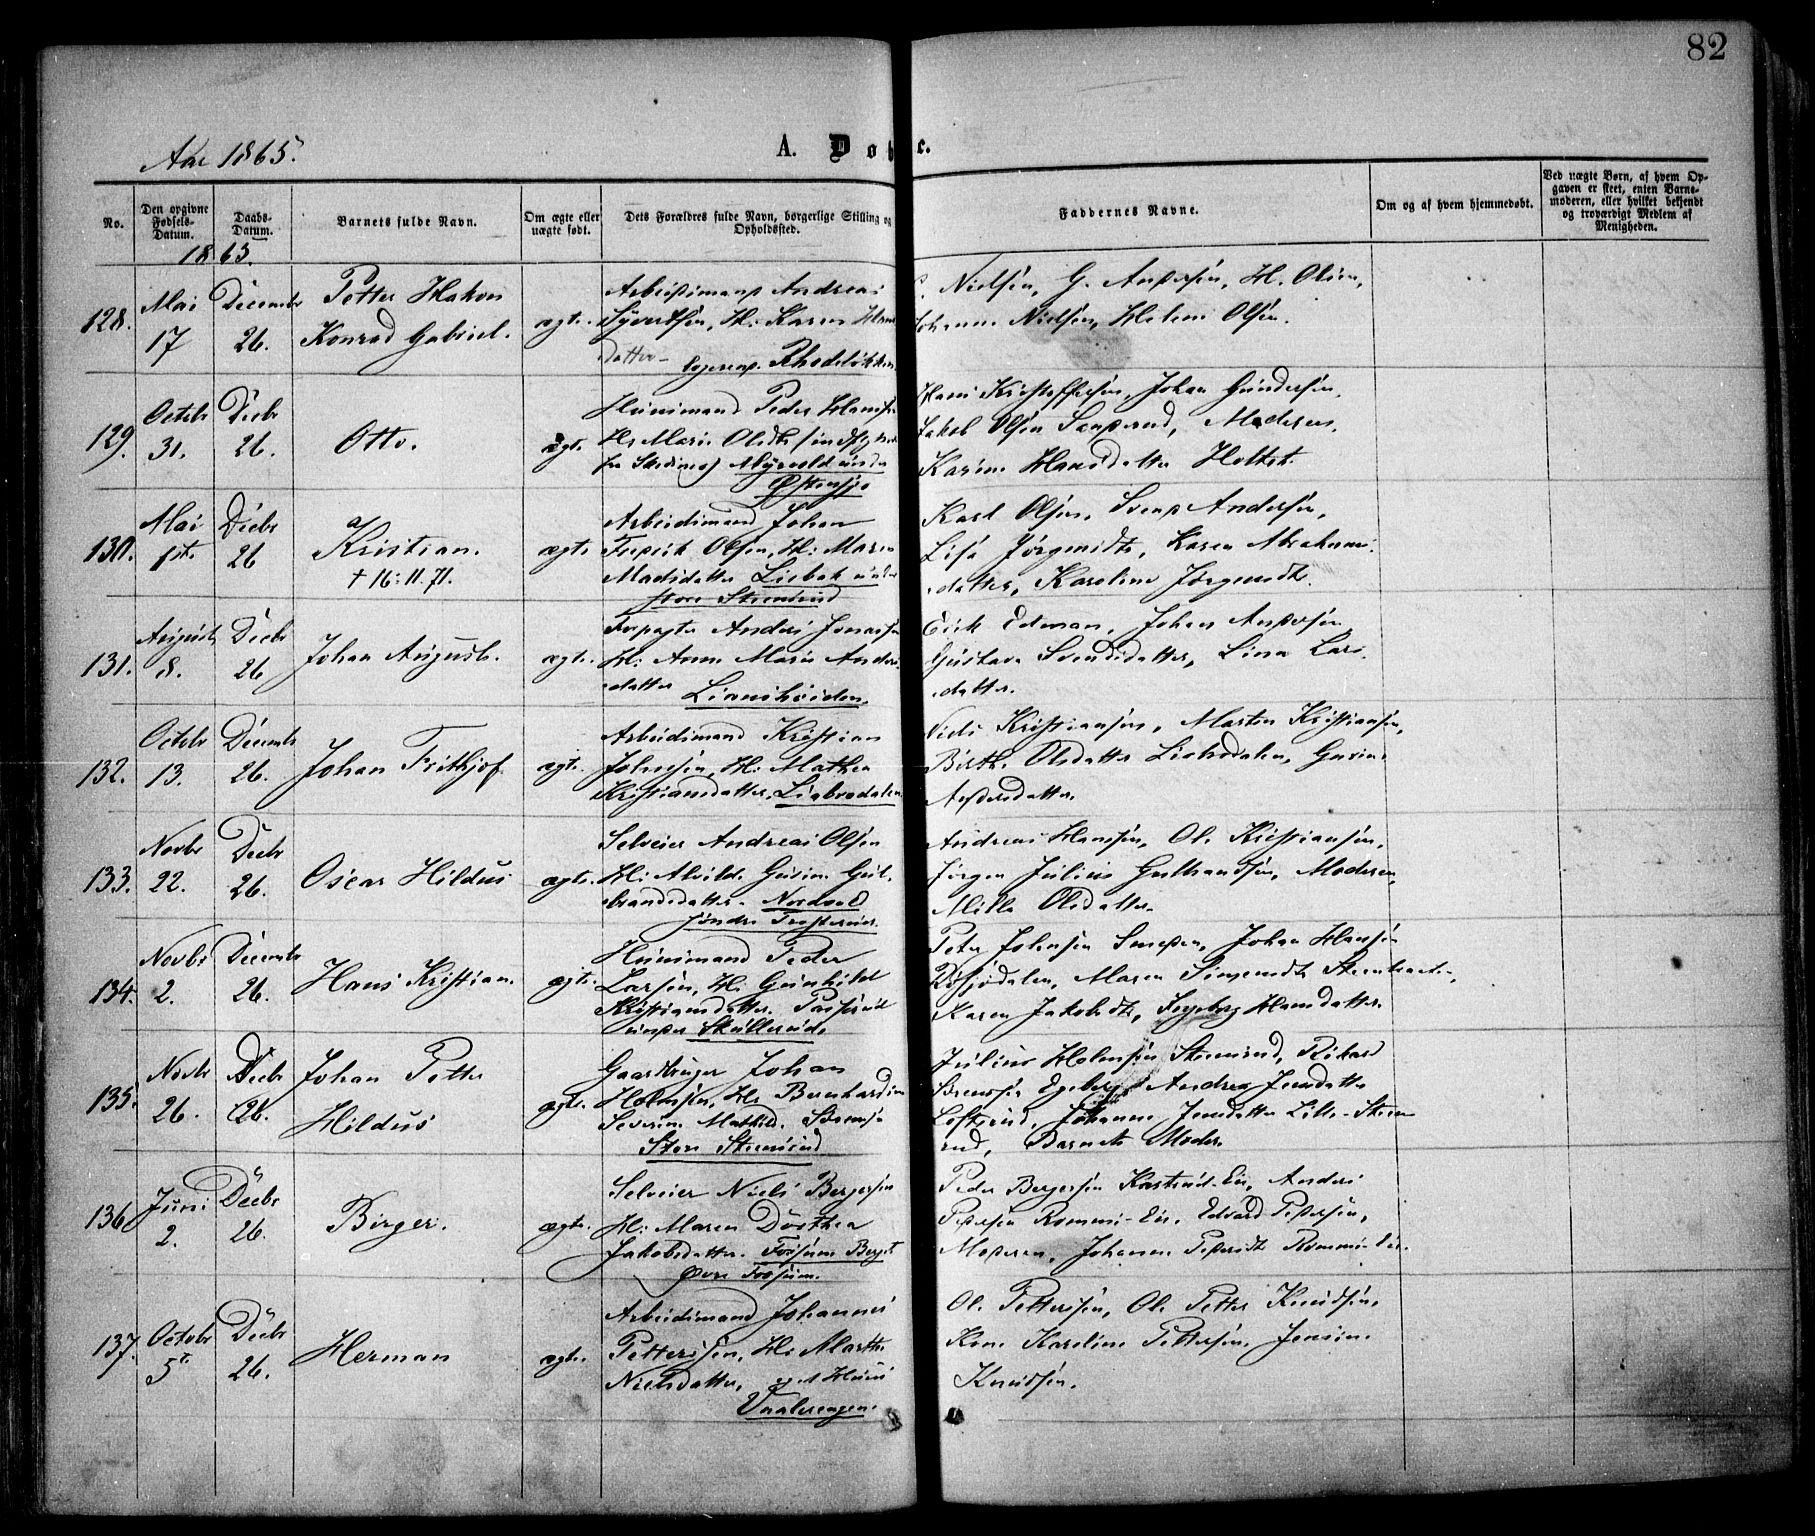 82
Aar 1865.
A. Døbte.
No.
Den opgivne Fødsels-Datum.
Daabs-Datum.
Barnets fulde Navn.
Om ægte eller uægte født.
Dets Forældres fulde Navn, borgerlige Stilling og Opholdssted.
Faddernes Navne.
Om og af hvem hjemmedøbt.
Ved uægte Børn, af hvem Op-
gaven er skeet, enten Barne-
moderen, eller hvilket bekjendt
og troværdigt Medlem af
Menigheden.
1865.
128. Mai 17 Decembr 26. Petter Hakon
Konrad Gabriel. ægte.
Arbeidsmand Andreas
Syvertsen, H: Karen
datter logerende Rhodeløkken
Nielsen, G. Andersen, H. Olsen,
Johanne Nielsen, Helene Olsen.
129. Octob 31. Decbr 26. Otto. ægte.
Huusmand Peder Hansen
H: Marie Olsdtr
Myrvold under
Østensjø
Hans Kristoffersen, Johan Gundersen,
Jakob Olsen, Moderen,
Karine Hansdatter Holtet.
130. Mai 1st. Decbr 26 Kristian. ægte.
† 16:11.71.
Arbeidsmand Johan
Fredrik Olsen, H: Maren
Madsdatter Liabak under
store Steenrud
Karl Olsen, Svend Andersen,
Lise Jørgensdtr, Karen Abrahams-
datter, Karoline Jørgensdtr.
131. August 8. Decbr 26 Johan August. ægte.
Forpagter Anders Jonassen
H: Anne Marie Anders-
datter Lianshøiden.
Erik Edman, Johan Andersen
Gustava Svendsdatter, Lina Lars-
datter.
132. Octob 13. Decembr 26. Johan Frithjof ægte.
Arbeidsmand Kristian
Johnsen, H: Mathea
Kristiansdatter, Liabrodalen.
Niels Kristiansen, Marten Kristiansen,
Birthe Olsdatter Liabrodalen, Gurine
Andersdatter.
133. Novbr 22. Decbr 26. Oscar Hildus ægte.
Selveier Andreas Olsen
H: Alvilde Gurine Gul-
brandsdatter. Nordvold
søndre
Andreas Hansen, Ole Kristiansen,
Jørgen Julius Gulbrandsen, Moderen,
Milla Olsdatter.
134. Novbr 2. Decembr 26. Hans Kristian. ægte.
Huusmand Peder
Larsen, H: Gunhild
Kristiansdatter.
under Skullerud.
Peter Johnsen, Johan Hansen
Maren
Karen Jakobsdtr, Ingeborg Hansdatter.
135. Novbr 26. Decbr 26. Johan Petter
Hildus ægte.
Gaardbruger Johan
H: Bernhardine
Severine Mathilde
Store Steenrud
Julius Steenrud, Rikard
Egeberg, Andrea Jensdatter
Johanne Jensdatter Lille-Steen-
rud, Barnets Moder.
136 Juni 2. Decbr 26. Birger. ægte.
Selveier Niels Bergersen
H: Maren Dorthea
Jakobsdatter. Fossum Berget
Øvre Fossum.
Peder Bergersen, Anders
Pedersen Rommi-Eie, Edvard Pedersen,
Moderen, Johanne Pedersdtr Rommi-Eie.
137. Octobr 5t. Decbr 26. Herman ægte.
Arbeidsmand Johannes
Pettersen, H: Marthe
Nielsdatter,
Vaalerengen.
Ole Pettersen, Ole Petter Knudsen,
Kone Karoline Pettersen, Jensine
Knudsen.